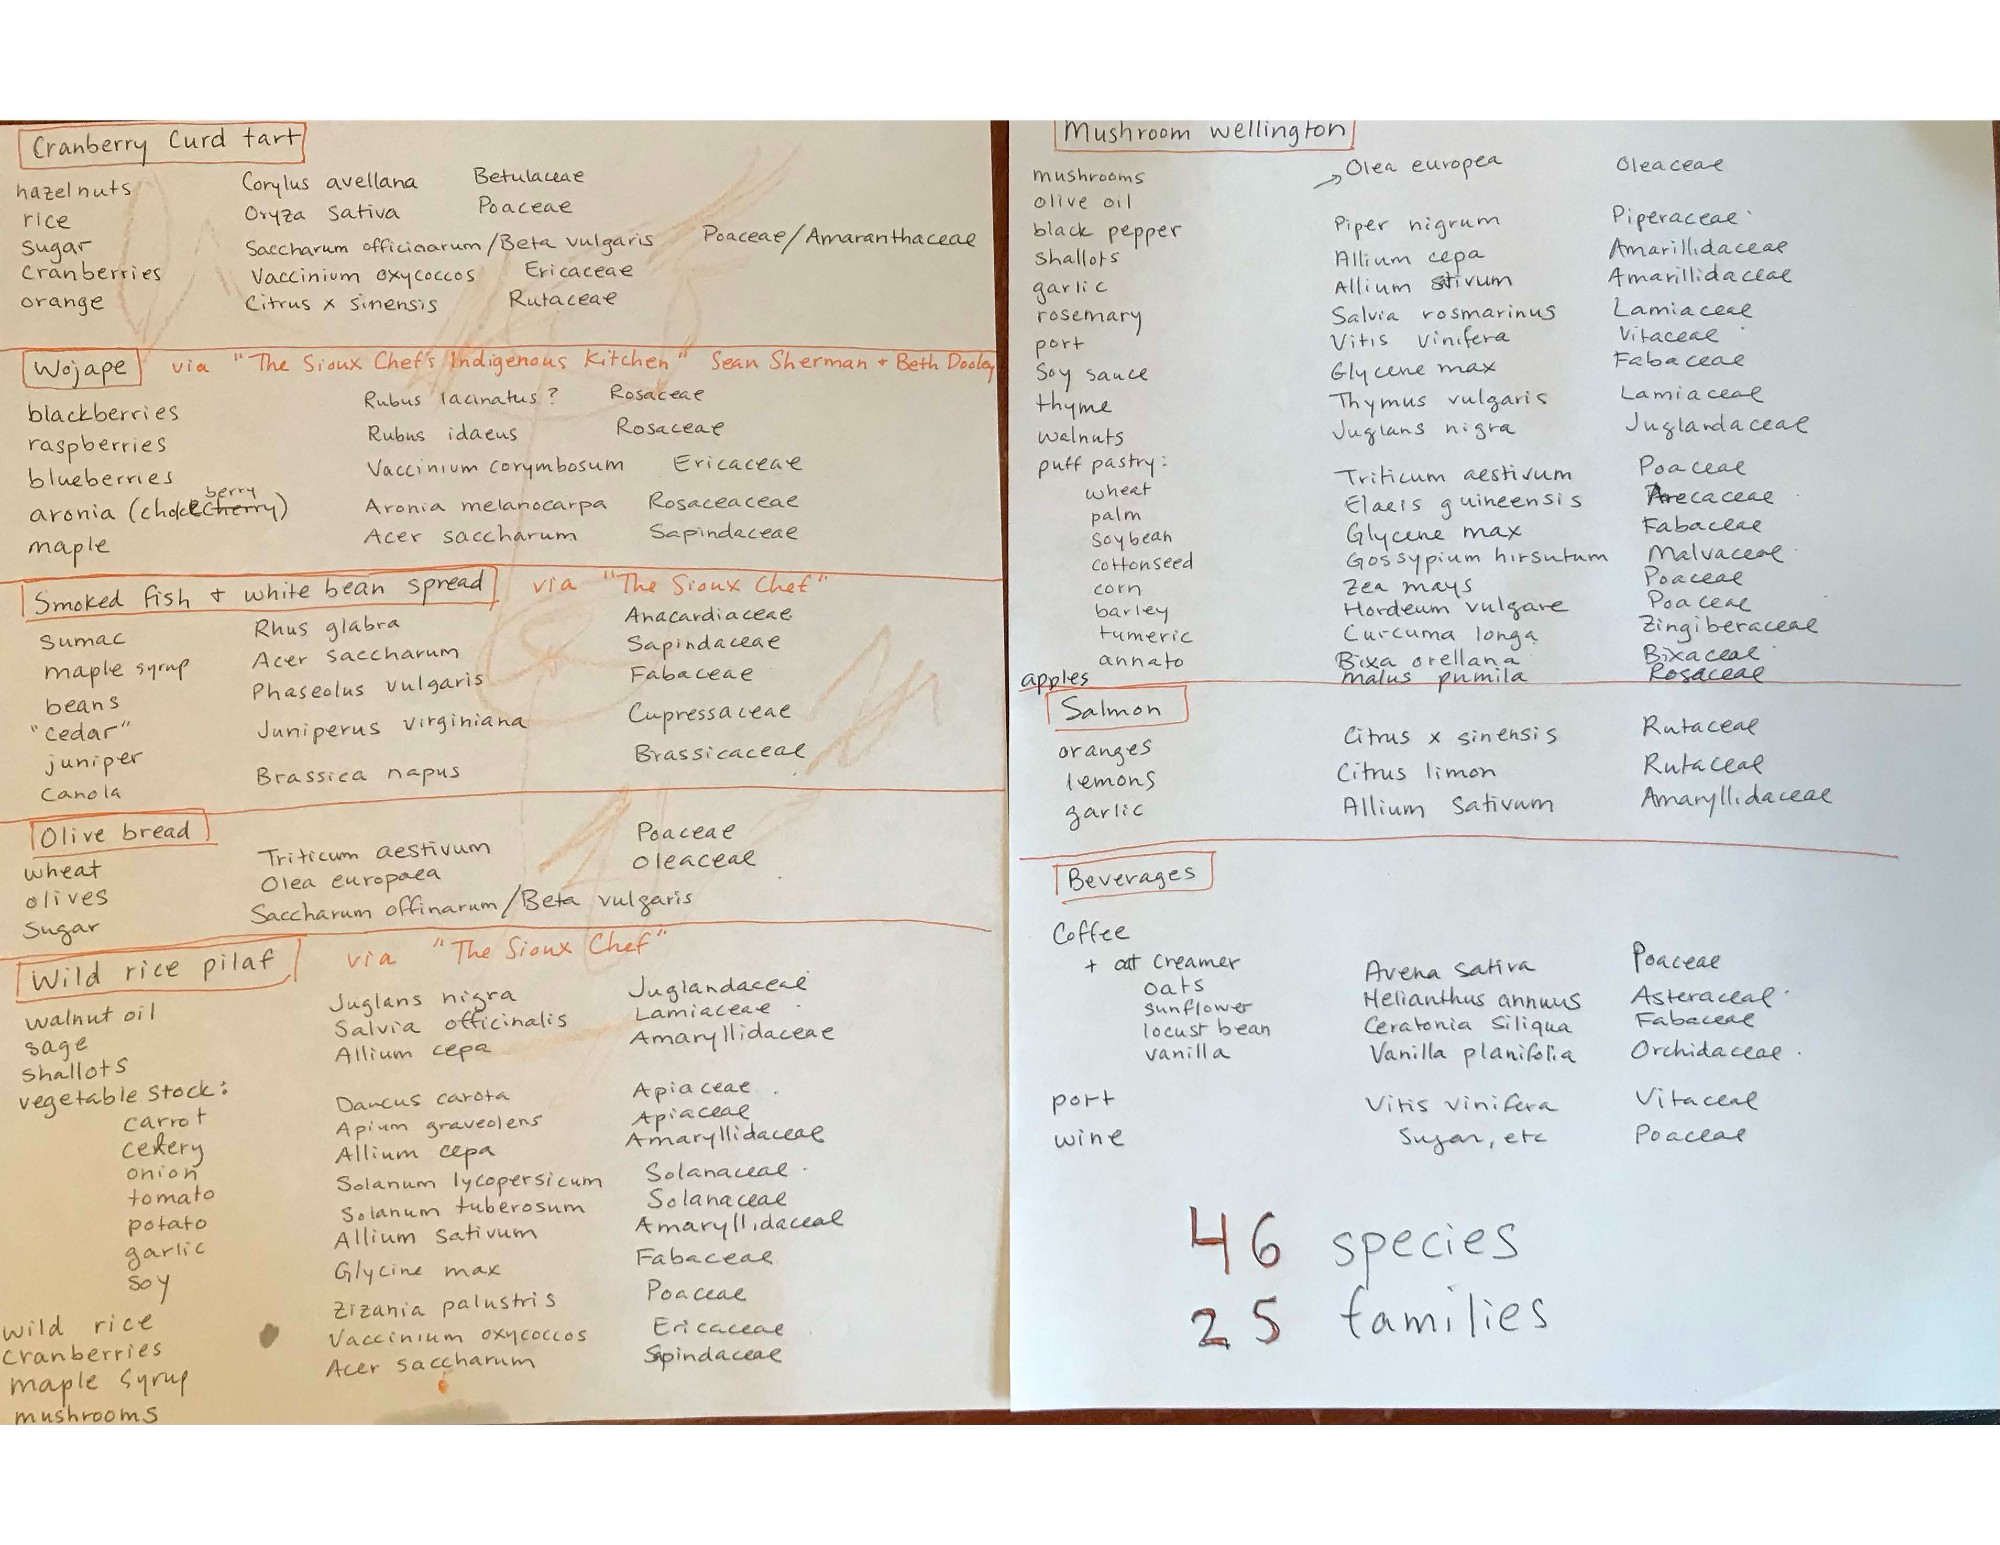 Cranberry Curd tart
hazelnuts Corylus avellana Betulaceae
rice Oryza sativa Poaceae
sugar Saccharum officinarum/Beta vulgaris Poaceae/Amaranthaceae
cranberries Vaccinium oxycoccos Ericaceae
orange Citrus x sinensis Rutaceae
Wojape via "The Sioux Chef's Indigenous Kitchen" Sean Sherman + Beth Dooley
blackberries Rubus lacinatus? Rosaceae
raspberries Rubus idaeus Rosaceae
blueberries Vaccinium corymbosum Ericaceae
berry
aronia (chokecherry) Aronia melanocarpa Rosaceaceae
maple Acer saccharum Sapindaceae
Smoked fish + white bean spread via "The Sioux Chef"
sumac Rhus glabra Anacardiaceae
maple syrup Acer saccharum Sapindaceae
beans Phaseolus vulgaris Fabaceae
"cedar" Juniperus virginiana Cupressaceae
juniper
canola Brassica napus Brassicaceae
Olive bread
wheat Triticum aestivum Poaceae
olives Olea europaea Oleaceae
sugar Saccharum offinarum/Beta vulgaris
Wild rice pilaf via "The Sioux Chef"
walnut oil Juglans nigra Juglandaceae
sage Salvia officinalis Lamiaceae
shallots Allium cepa Amaryllidaceae
vegetable stock:
carrot Daucus carota Apiaceae
celery Apium graveolens Apiaceae
onion Allium cepa Amaryllidaceae
tomato Solanum lycopersicum Solanaceae
potato Solanum tuberosum Solanaceae
garlic Allium sativum Amaryllidaceae
soy Glycine max Fabaceae
wild rice Zizania palustris Poaceae
cranberries Vaccinium oxycoccos Ericaceae
maple syrup Acer saccharum Sapindaceae
mushrooms
Mushroom wellington
mushrooms
olive oil Olea europea Oleaceae
black pepper Piper nigrum Piperaceae
shallots Allium cepa Amarillidaceae
garlic Allium stivum Amarillidaceae
rosemary Salvia rosmarinus Lamiaceae
port Vitis vinifera Vitaceae
Soy sauce Glycene max Fabaceae
thyme Thymus vulgaris Lamiaceae
walnuts Juglans nigra Juglandaceae
puff pastry:
wheat Triticum aestivum Poaceae
palm Elaeis guineensis Arecaceae
soybean Glycene max Fabaceae
cottonseed Gossypium hirsutum Malvaceae
corn Zea mays Poaceae
barley Hordeum vulgare Poaceae
tumeric Curcuma longa Zingiberaceae
annato Bixa orellana Bixaceae
apples malus pumila Rosaceae
Salmon
oranges Citrus x sinensis Rutaceae
lemons Citrus limon Rutaceae
garlic Allium sativum Amaryllidaceae
Beverages
Coffee
+ oat creamer
oats Avena sativa Poaceae
sunflower Helianthus annuus Asteraceae
locust bean Ceratonia siliqua Fabaceae
vanilla Vanilla planifolia Orchidaceae
port Vitis vinifera Vitaceae
wine Sugar, etc Poaceae
46 species
25 families